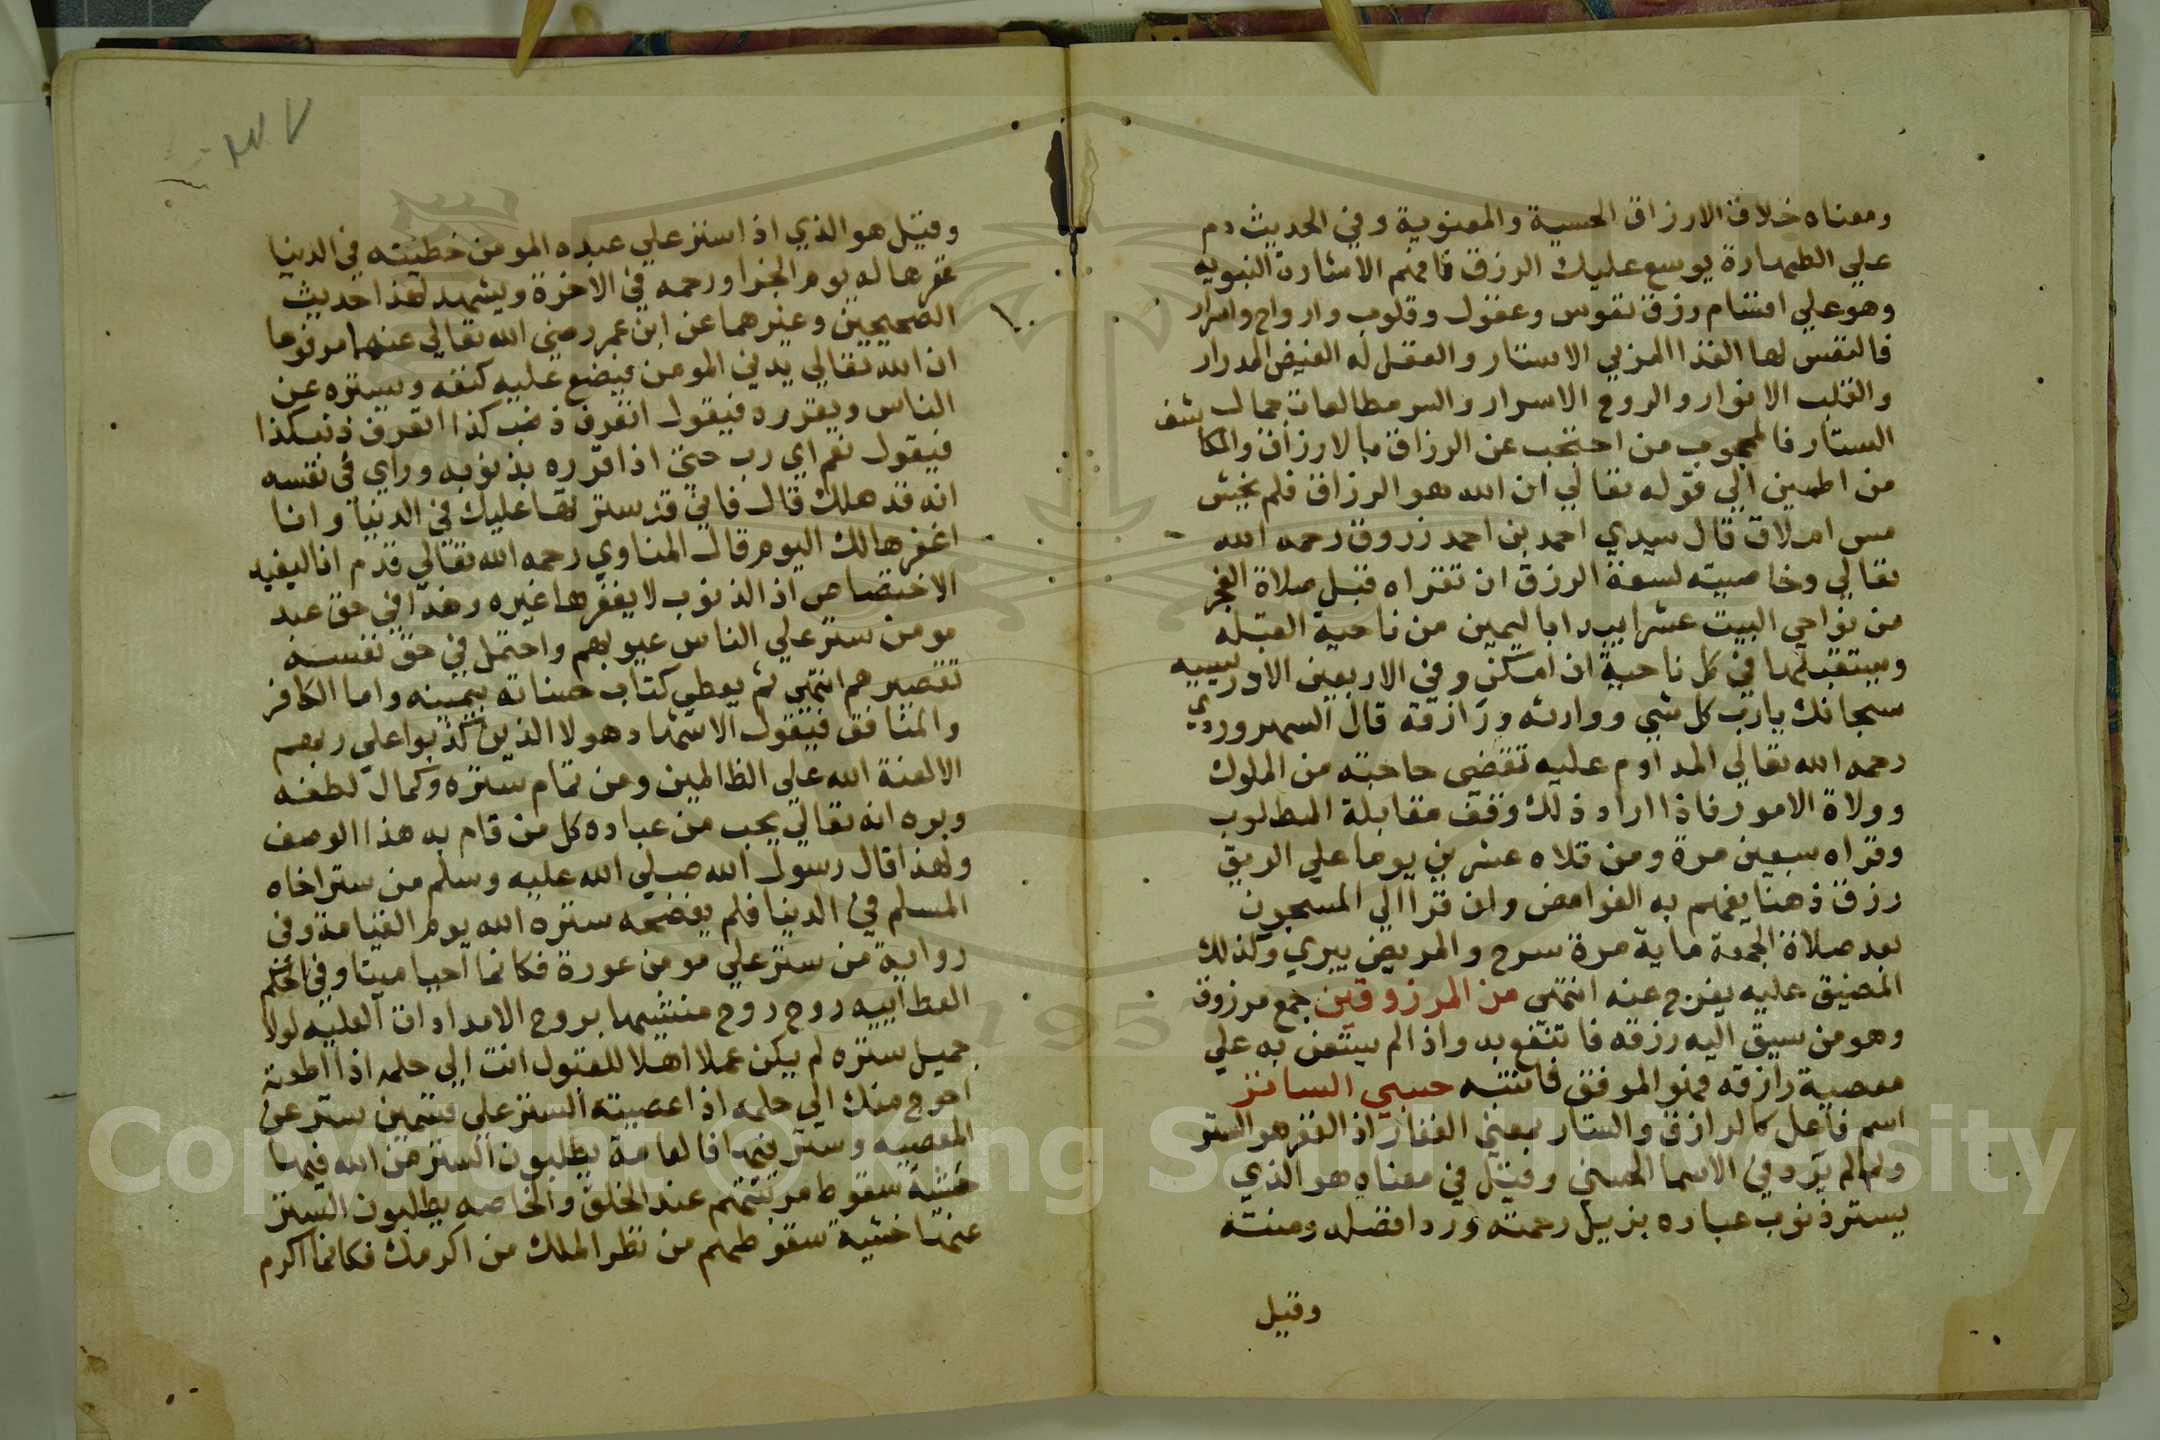 ومعناه خلاف الارزاق الحسية والمعنوية وفي الحديث دم
علي الطهارة يوسع عليك الرزق فافهم الاشارة النبويه
وهو علي اقسام رزق نفوس وعقول وقلوب وارواح واسرار
فالنفس لها الغذا المزبي الاستار والعقل له الفيض المدرار
والقلب الانوار والروح الاسرار والسر مطالعات جمال
الستار فالمحجوب من احتجب عن الرزاق بالارزاق والمكاشف
من اطمين الي قوله تعالي ان الله هو الرزاق فلم يخش
مس املاق قال سيدي احمد بن احمد زروق رحمه الله
تعالي وخاصيته لسعة الرزق ان تقراه قبل صلاة الفجر
من نواحي البيت عشرا يبدا باليمين من ناحية القبلة
ويستقبلها في كل ناحية ان امكن وفي الاربعين الادريسيه
سبحانك يارب كل شي ووارثه ورازقه قال السهروردي
رحمه الله تعالي المداوم عليه تقضي حاجته من الملوك
وولاة الامور فاذا اراد ذلك وقف مقابلة المطلوب
وقراه سبعين مرة ومن تلاه عشرين يوما علي الريق
رزق ذهنا يفهم به الغوامض وان قرا الي المسجون
بعد صلاة الجمعة ماية مرة سرح والمريض يبري وكذلك
المضيق عليه يفرج عنه انتهي من المرزوقين جمع مرزوق
وهو من سيق اليه رزقه فانتفع به واذا لم يستعن به علي
معصية رازقه فهو الموفق فانتبه حسبي الساتر
اسم فاعل كالرازق والستار بمعني الغفار اذ الغفر هو الستر
ولما لم يرد في الاسما الحسني وقيل في معناه هو الذي
يستر ذنوب عباده بزيل رحمته وردا فضله ومنته
وقيل
وقيل هو الذي اذا ستر علي عبده المومن خطيته في الدنيا
غفرها له يوم الجزا ورحمه في الاخرة ويشهد لهذا حديث
الصحيحين وغيرهما عن ابن عمر رضي الله تعالي عنهما مرفوعا
ان الله تعالي يدني المومن فيضع عليه كنفه ويستره عن
الناس ويقرره فيقول اتعرف ذنب كذا اتعرف ذنب كذا
فيقول نعم اي رب حتي اذا قرره بذنوبه وراي في نفسه
انه قد هلك قال فاني قد سترتها عليك في الدنيا وانا
اغفرها لك اليوم قال المناوي رحمه الله تعالي قدم انا ليفيد
الاختصاص اذ الذنوب لا يغفرها غيره وهذا في حق عبد
مومن ستر علي الناس عيوبهم واحتمل في حق نفسه
تقصيرهم انتهي ثم يعطي كتاب حسناته بيمينه واما الكافر
والمنافق فيقول الاشهاد هولا الذين كذبوا علي ربهم
الا لعنة الله علي الظالمين ومن تمام ستره وكمال لطفه
وبره انه تعالي يحب من عباده كل من قام به هذا الوصف
ولهذا قال رسول الله صلي الله عليه وسلم من ستر اخاه
المسلم في الدنيا فلم يفضحه ستره الله يوم القيامة وفي
رواية من ستر علي مومن عورة فكانما احيا ميتا وفي الحكم
العطاييه روح روح منشيها بروح الامدادات العليه لولا
جميل ستره لم يكن عملا اهلا للقبول انت الي حلمه اذا اطعته
احوج منك الي حلمه اذا عصيته الستر علي قسمين ستر عن
المعصيه وستر فيها فالعامة يطلبون الستر من الله فيها
خشية سقوط مرتبتهم عند الخلق والخاصه يطلبون الستر
عنها خشية سقوطهم من نظر الملك من اكرمك فكانما اكرم